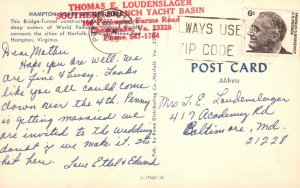 HAMPTON
This Bridge-Tunnel
deep waters of World Famous
connects the cities of Norfolk,
Hampton, Virginia
THOMAS E. LOUDENSLAGER
SOUTHERN BRANCH YACHT BASIN
Farms Road
Va. 23320
Phone 547-1764
ALWAYS USE
ZIP CODE
6¢
POST CARD
Address
Dear Mother
Hope you are well. We
are fine & busy. Looks
like you all could come
down over the 4th. Penny
is getting married we
are invited to the wedding
doubt if we make it. It's
hot here. Love Ethel & Edward
Mrs. T. E. Loudenslager
417 Academy Rd
Baltimore, Md.
21228